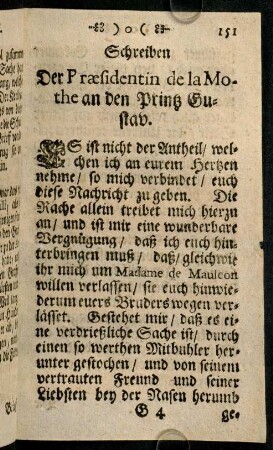 )o( 151
Schreiben
Der Præsidentin de la Mo-
the an den Printz Gu-
stav.
ES ist nicht der Antheil/ wel-
chen ich an eurem Hertzen
nehme/ so mich verbindet/ euch
diese Nachricht zu geben. Die
Rache allein treibet mich hierzu
an/ und ist mir eine wunderbare
Vergnügung/ daß ich euch hin-
terbringen muß/ daß/ gleichwie
ihr mich um Madame de Mauleon
willen verlassen/ sie euch hinwie-
derum euers Bruders wegen ver-
lässet. Gestehet mir/ daß es ei-
ne verdrießliche Sache ist/ durch
einen so werthen Mitbuhler her-
unter gestochen/ und von seinem
vertrauten Freund und seiner
Liebsten bey der Nasen herumb
G 4 ge-